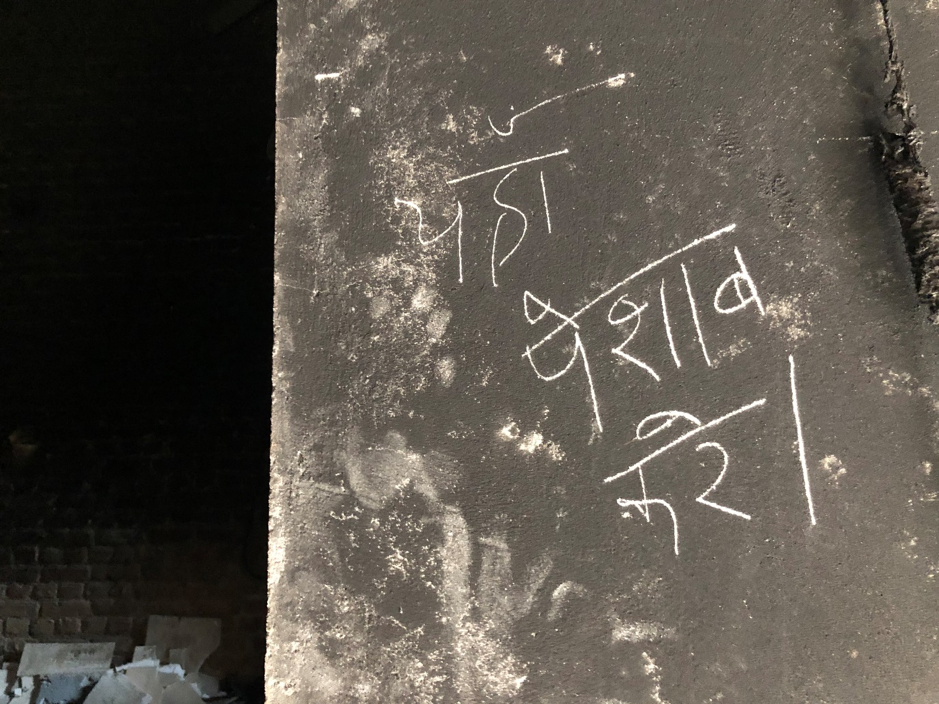 यहा
पेशाब
करे।